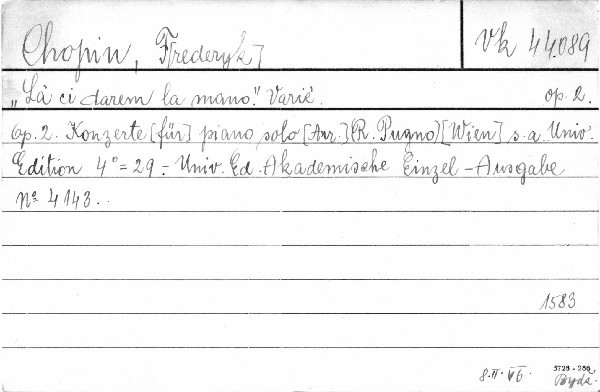 Chopin, F[rederyk]
Vk 44.089
„Là ci darem la mano." Varié.
op. 2.
Op. 2. Konzerte [für] piano solo [Arr.] (R. Pugno) [Wien] s. a. Univ.
Edition 4° = 29 - Univ. Ed. Akademische Einzel-Ausgabe
No 4143.
1583
8.II.
5728-286